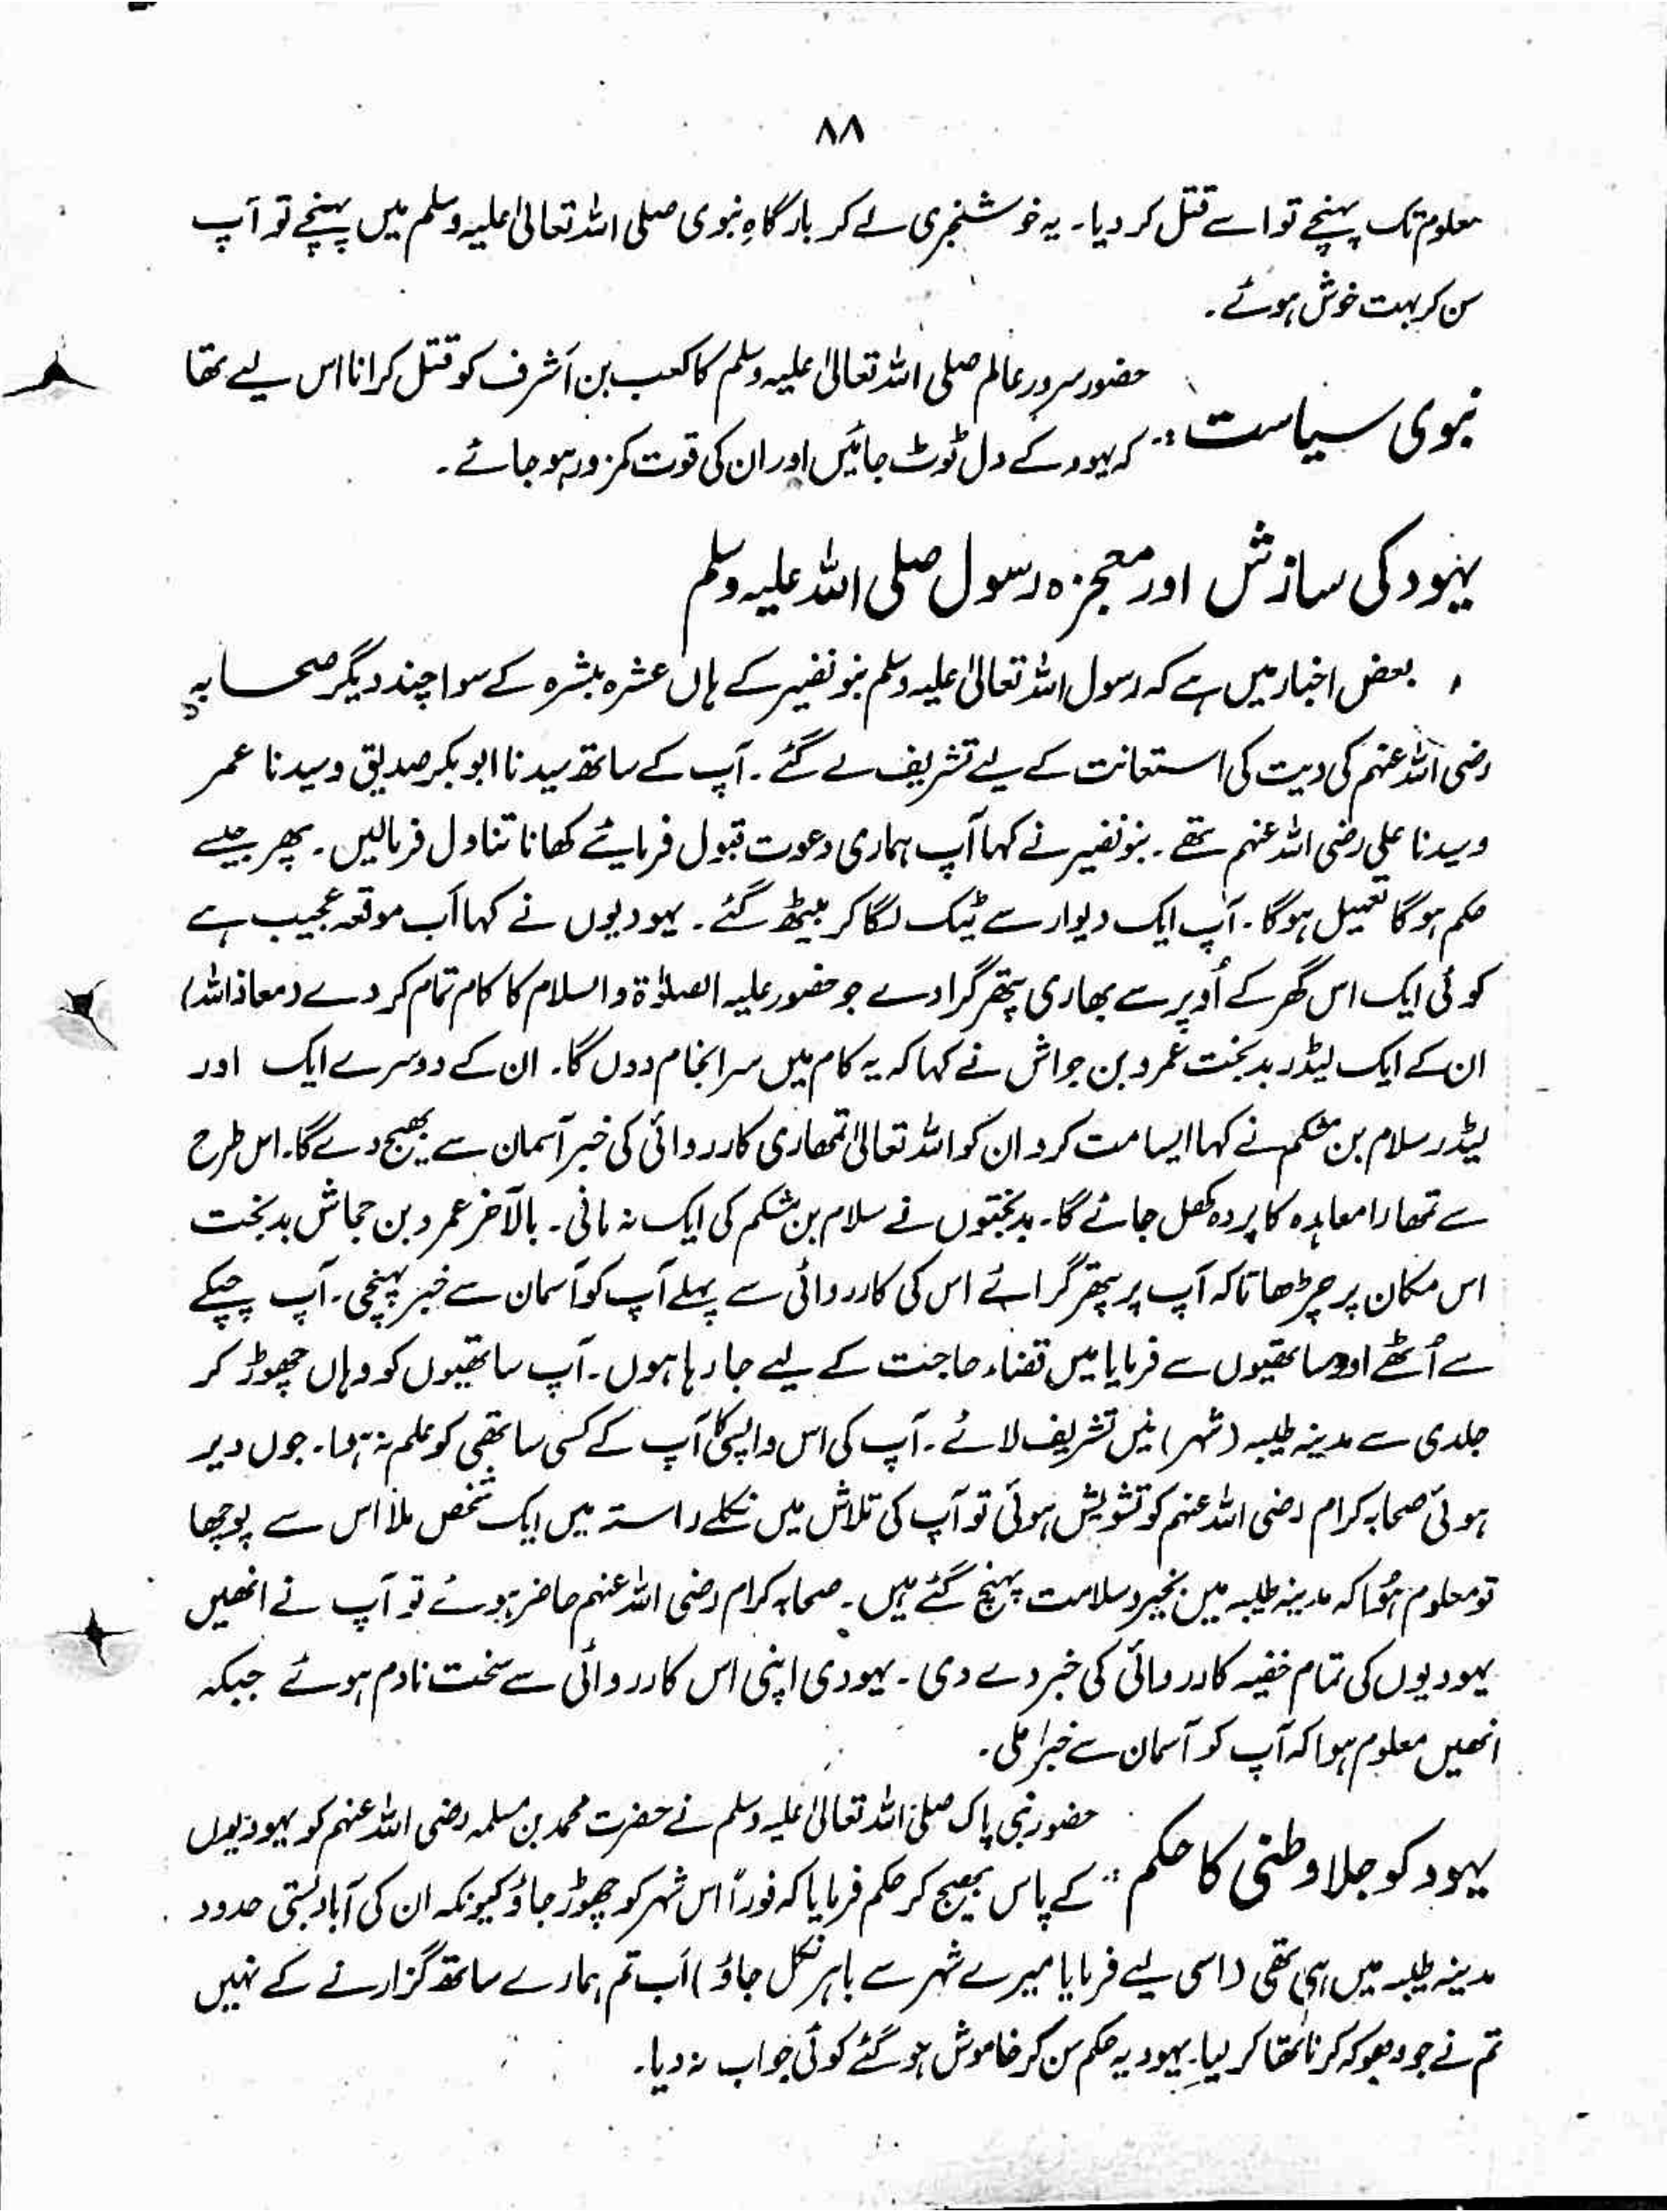 ۸۸
معلوم تک پہنچے تو اسے قتل کر دیا۔ یہ خوشخبری لے کر بارگاہِ نبوی صلی اللہ تعالیٰ علیہ وسلم میں پہنچے تو آپ
سن کر بہت خوش ہوئے۔
حضور سرور عالم صلی اللہ تعالیٰ علیہ وسلم کا کعب بن اَشرف کو قتل کرانا اس لیے تھا
نبوی سیاست:۔ کہ یہود کے دل ٹوٹ جائیں اور ان کی قوت کمزور ہو جائے۔
یہود کی سازش اور معجزہ رسول صلی اللہ علیہ وسلم
بعض اخبار میں ہے کہ رسول اللہ تعالیٰ علیہ وسلم بنو نضیر کے ہاں عشرہ مبشرہ کے سوا چند دیگر صحابہ
رضی اللہ عنہم کی دیت کی استعانت کے لیے تشریف لے گئے۔ آپ کے ساتھ سیدنا ابو بکر صدیق و سیدنا عمر
و سیدنا علی رضی اللہ عنہم تھے۔ بنو نضیر نے کہا آپ ہماری دعوت قبول فرمایئے کھانا تناول فرمالیں۔ پھر جیسے
حکم ہو گا تعمیل ہو گا۔ آپ ایک دیوار سے ٹیک لگا کر بیٹھ گئے۔ یہودیوں نے کہا اَب موقعہ عجیب ہے
کوئی ایک اس گھر کے اُوپر سے بھاری پتھر گرا دے جو حضور علیہ الصلوٰۃ والسلام کا کام تمام کر دے (معاذ اللہ)
ان کے ایک لیڈر بدبخت عمرو بن جواش نے کہا کہ یہ کام میں سرانجام دوں گا۔ ان کے دوسرے ایک اور
لیڈر سلام بن مشکم نے کہا ایسا مت کرو ان کو اللہ تعالیٰ تمھاری کارروائی کی خبر آسمان سے بھیج دے گا۔ اس طرح
سے تمھارا معاہدہ کا پردہ کھل جائے گا۔ بدبختوں نے سلام بن مشکم کی ایک نہ مانی۔ بالآخر عمرو بن حجاش بدبخت
اس مکان پر چڑھا تاکہ آپ پر پتھر گرائے اس کی کارروائی سے پہلے آپ کو آسمان سے خبر پہنچی۔ آپ چپکے
سے اُٹھے اور ساتھیوں سے فرمایا میں قضاء حاجت کے لیے جا رہا ہوں۔ آپ ساتھیوں کو وہاں چھوڑ کر
جلدی سے مدینہ طیبہ (شہر) میں تشریف لائے۔ آپ کی اس واپسی کا آپ کے کسی ساتھی کو علم نہ ہوا۔ جوں دیر
ہوئی صحابہ کرام رضی اللہ عنہم کو تشویش ہوئی تو آپ کی تلاش میں نکلے راستہ میں ایک شخص ملا اس سے پوچھا
تو معلوم ہُوا کہ مدینہ طیبہ میں بخیر و سلامت پہنچ گئے ہیں۔ صحابہ کرام رضی اللہ عنہم حاضر ہوئے تو آپ نے انھیں
یہودیوں کی تمام خفیہ کارروائی کی خبر دے دی۔ یہودی اپنی اس کارروائی سے سخت نادم ہوئے جبکہ
انھیں معلوم ہوا کہ آپ کو آسمان سے خبر ملی۔
حضور نبی پاک صلی اللہ تعالیٰ علیہ وسلم نے حضرت محمد بن مسلمہ رضی اللہ عنہم کو یہودیوں
یہود کو جلا وطنی کا حکم:۔ کے پاس بھیج کر حکم فرمایا کہ فوراً اس شہر کو چھوڑ جاؤ کیونکہ ان کی آباد بستی حدود
مدینہ طیبہ میں ہی تھی (اسی لیے فرمایا میرے شہر سے باہر نکل جاؤ) اَب تم ہمارے ساتھ گزارنے کے نہیں
تم نے جو دھوکہ کرنا تھا کر لیا۔ یہود یہ حکم سن کر خاموش ہو گئے کوئی جواب نہ دیا۔